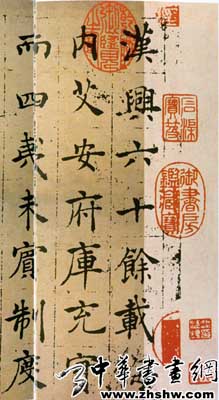 漢興六十餘載
內艾安府庫充實
而四夷未賓制度
御書房鑑藏寶
中華書畫網
www.zhshw.com